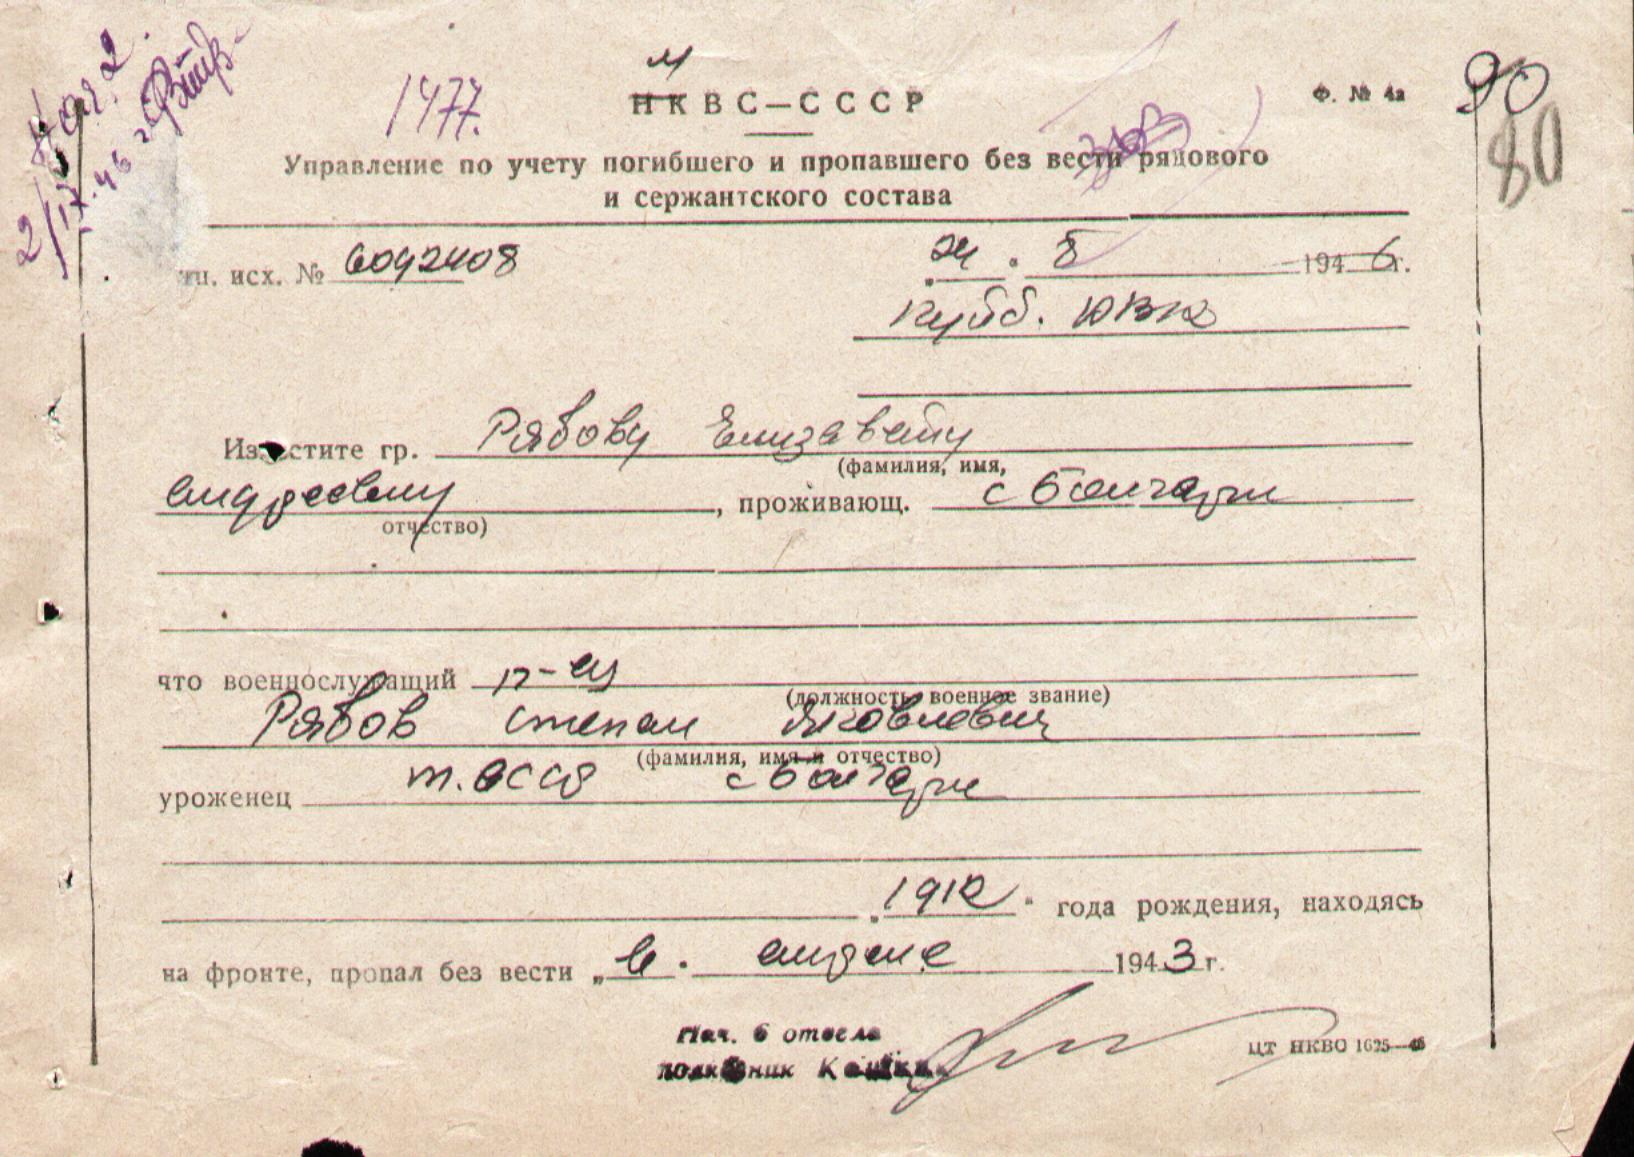 1477.
М
НКВС—СССР
Ф. № 4а
90
80
Управление по учету погибшего и пропавшего без вести рядового
и сержантского состава
исх. № 6092408
24 " 8 1946г.
Куйб. ЮВК
Известите гр. Рябову Елизавету
(фамилия, имя,
Андреевну, проживающ. с Болгары
отчество)
что военнослужащий к-ец
(должность военное звание)
Рябов Степан Яковлевич
(фамилия, имя и отчество)
уроженец Т.АССР с Болгары
„1912" года рождения, находясь
на фронте, пропал без вести „в" апреле 1943г.
Нач. 6 отдела
полковник
ЦТ НКВО 1625—46